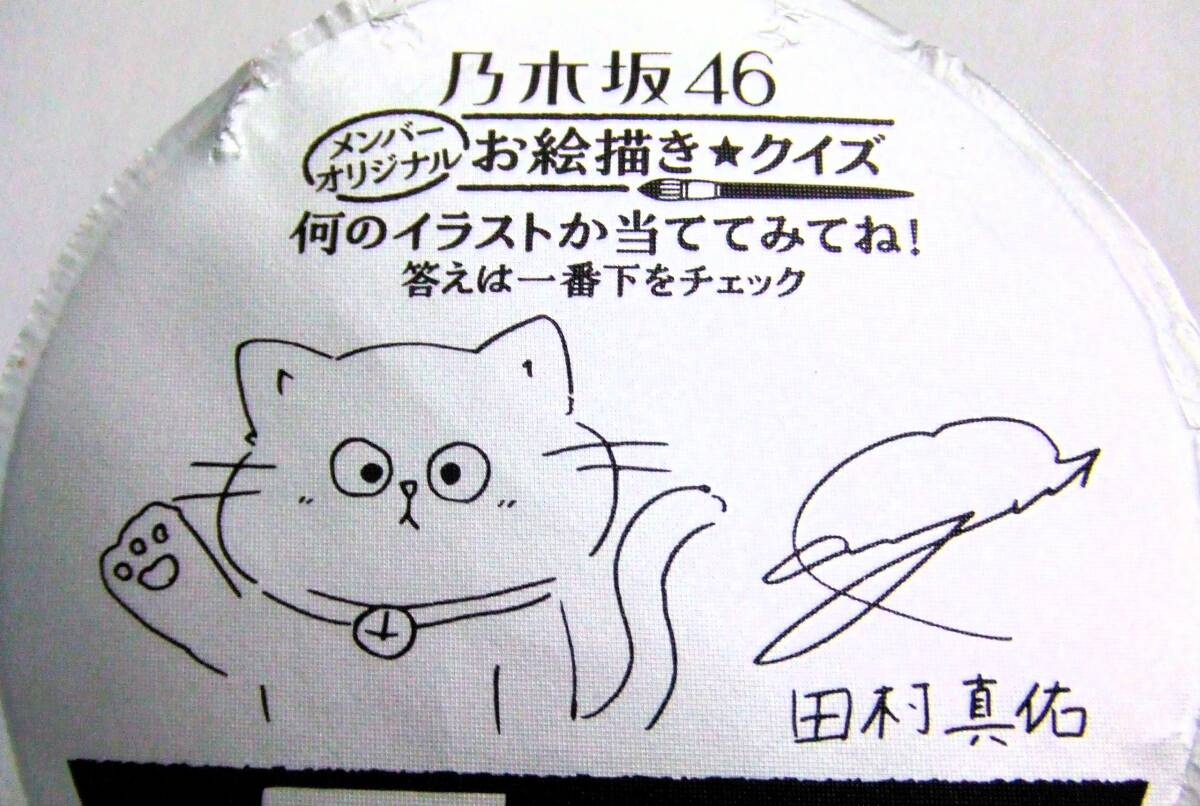 乃木坂46
メンバー
オリジナル
お絵描き★クイズ
何のイラストか当ててみてね!
答えは一番下をチェック
田村真佑